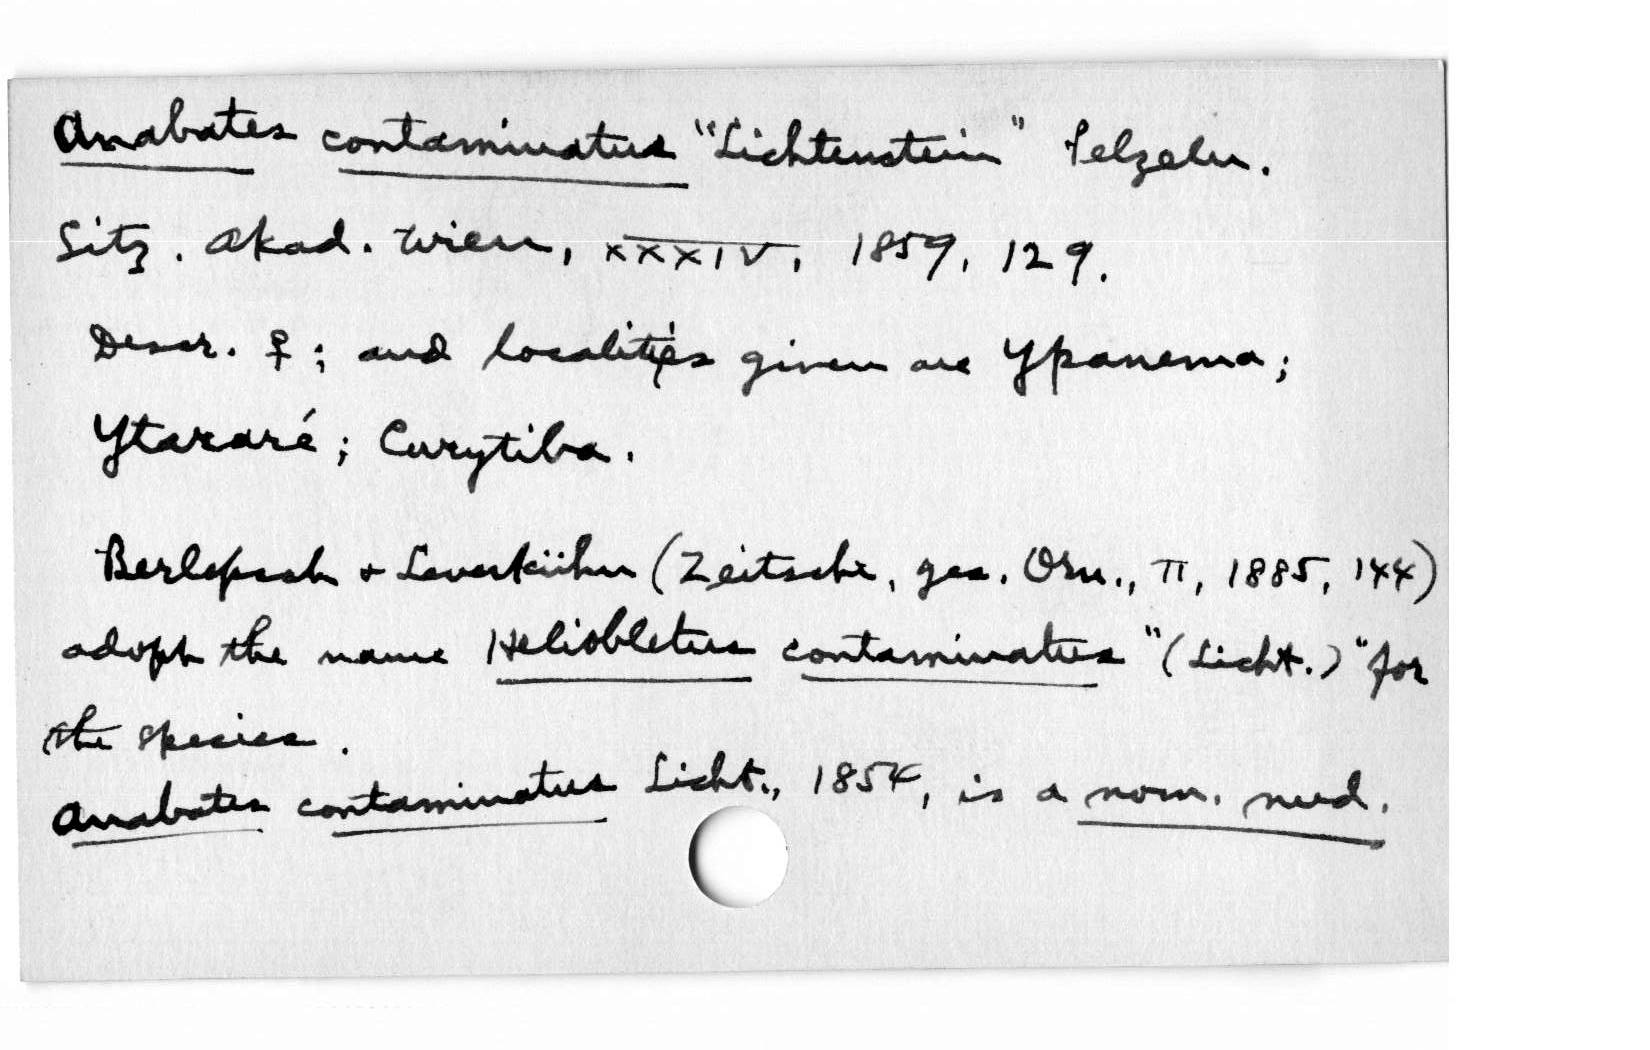 Anabates contaminatus "Lichtenstein" Pelzeln.
Sitz. Akad. Wien, XXXIV, 1859, 129.
Descr. ♀; and localities given are Ypanema;
Ytararé; Curytiba.
Berlepsch + Leverkühn (Zeitschr. ges. Orn., II, 1885, 144)
adopt the name Heliobletus contaminatus "(Licht.)" for
the species.
Anabates contaminatus Licht., 1854, is a nom. nud.